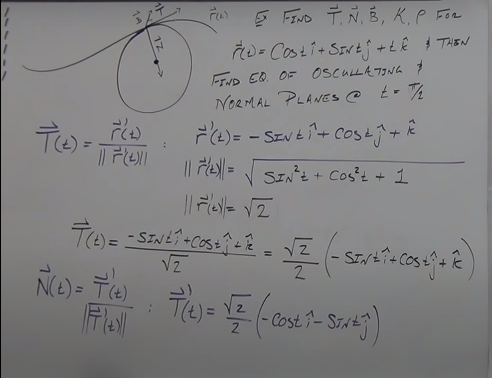 T⃗
r⃗(t)
B⃗
N⃗
Ex FIND T⃗, N⃗, B⃗, K, ρ FOR
r⃗(t) = COSt î + SINt ĵ + t k̂ & THEN
FIND EQ. OF OSCULATING &
NORMAL PLANES @ t = π/2
T⃗(t) = r⃗'(t) / ||r⃗'(t)|| : r⃗'(t) = -SINt î + COSt ĵ + k̂
||r⃗'(t)|| = √(SIN²t + COS²t + 1)
||r⃗'(t)|| = √2
T⃗(t) = (-SINt î + COSt ĵ + k̂) / √2 = √2/2 (-SINt î + COSt ĵ + k̂)
N⃗(t) = T⃗'(t) / ||T⃗'(t)|| : T⃗'(t) = √2/2 (-COSt î - SINt ĵ)